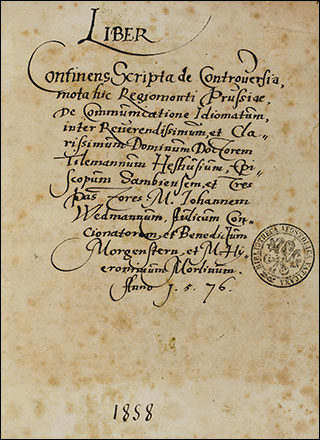 LIBER
Continens Scripta de Controuersia,
mota hic Regiomonti Prussiae,
De Communicatione Idiomatum,
inter Reuerendissimum, et Cla=
rissimum Dominum Doctorem
Tilemannum Heshusium, Epi=
scopum Sambiensem, et tres
Pastores M. Johannem
Wedmannum, Aulicum Con=
cionatorem, et Benedictum
Morgenstern, et M. Hy=
eronimum Morlinum.
Anno 1.5.76.
BIBLIOTHECA APOSTOLICA VATICANA
1858